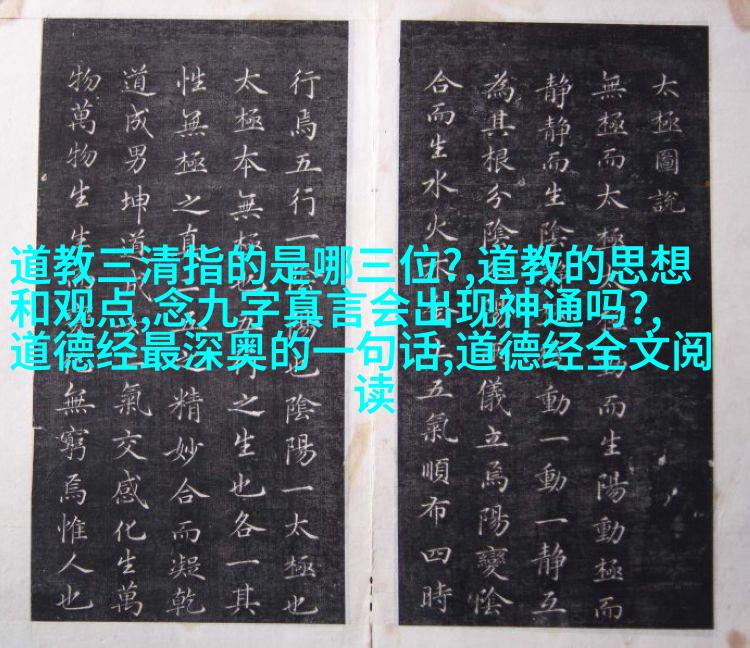 道教三清指的是哪三位?,道教的思想
和观点,念九字真言会出现神通吗?,
道德经最深奥的一句话,道德经全文阅
读
太極圖說
無極而太極太動而生陽動極而
靜靜而生陰靜動一動一靜互
為其根分陰陽儀立焉陽變陰
合而生水火木五氣順布四時
行焉五行一陰陽也陰陽一太極也
太極本無極也五之生也各一其
性無極之真精妙合而凝乾
道成男坤道成氣交感化生萬
物萬物生生無窮焉惟人也